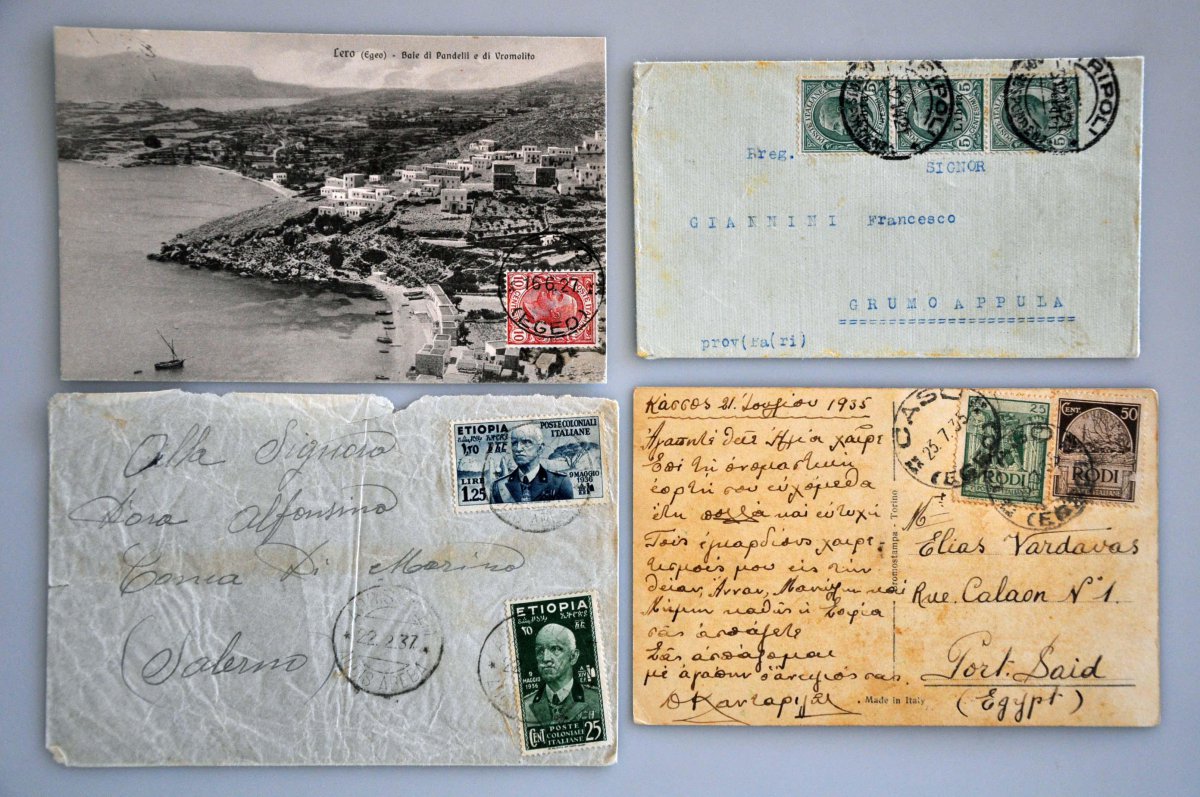 Lero (Egeo) - Baie di Pandelli e di Vromolito
16.6.27
(EGEO)
10
POSTE ITALIANE
LIBIA
15
TRIPOLI
RIPOLI
Preg.
SIGNOR
GIANNINI Francesco
GRUMO APPULA
prov(Ba(ri)
ETIOPIA
POSTE COLONIALI
ITALIANE
9 MAGGIO
1936
LIRE
1.25
Alla Signora
Dora Alfonsina
Di Marino
(Salerno)
22.2.37
ETIOPIA
9
MAGGIO
1936
POSTE
COLONIALE
ITALIANE
CENT 25
Κάσσος 21. Ιουλίου 1935
Αγαπητέ θείε Ηλία χαίρε
Επί τη ονομαστική
εορτή σου ευχόμεθα
έτη πολλά και ευτυχή
Τους εγκαρδίους χαιρε
τισμούς μου εις την
θείαν, Άνναν, και
καθώς η Σοφία
σας ασπάζεται
Σας ασπάζομαι
με αγάπην ο ανεψιός σας
CASO
23.7.35
(EGEO)
25
RODI
CENT 50
RODI
POSTE ITALIANE
Cromostampa - Torino
M
Elias Vardavas
Rue. Calaon Nº 1.
Port. Said
(Egypt)
Made in Italy